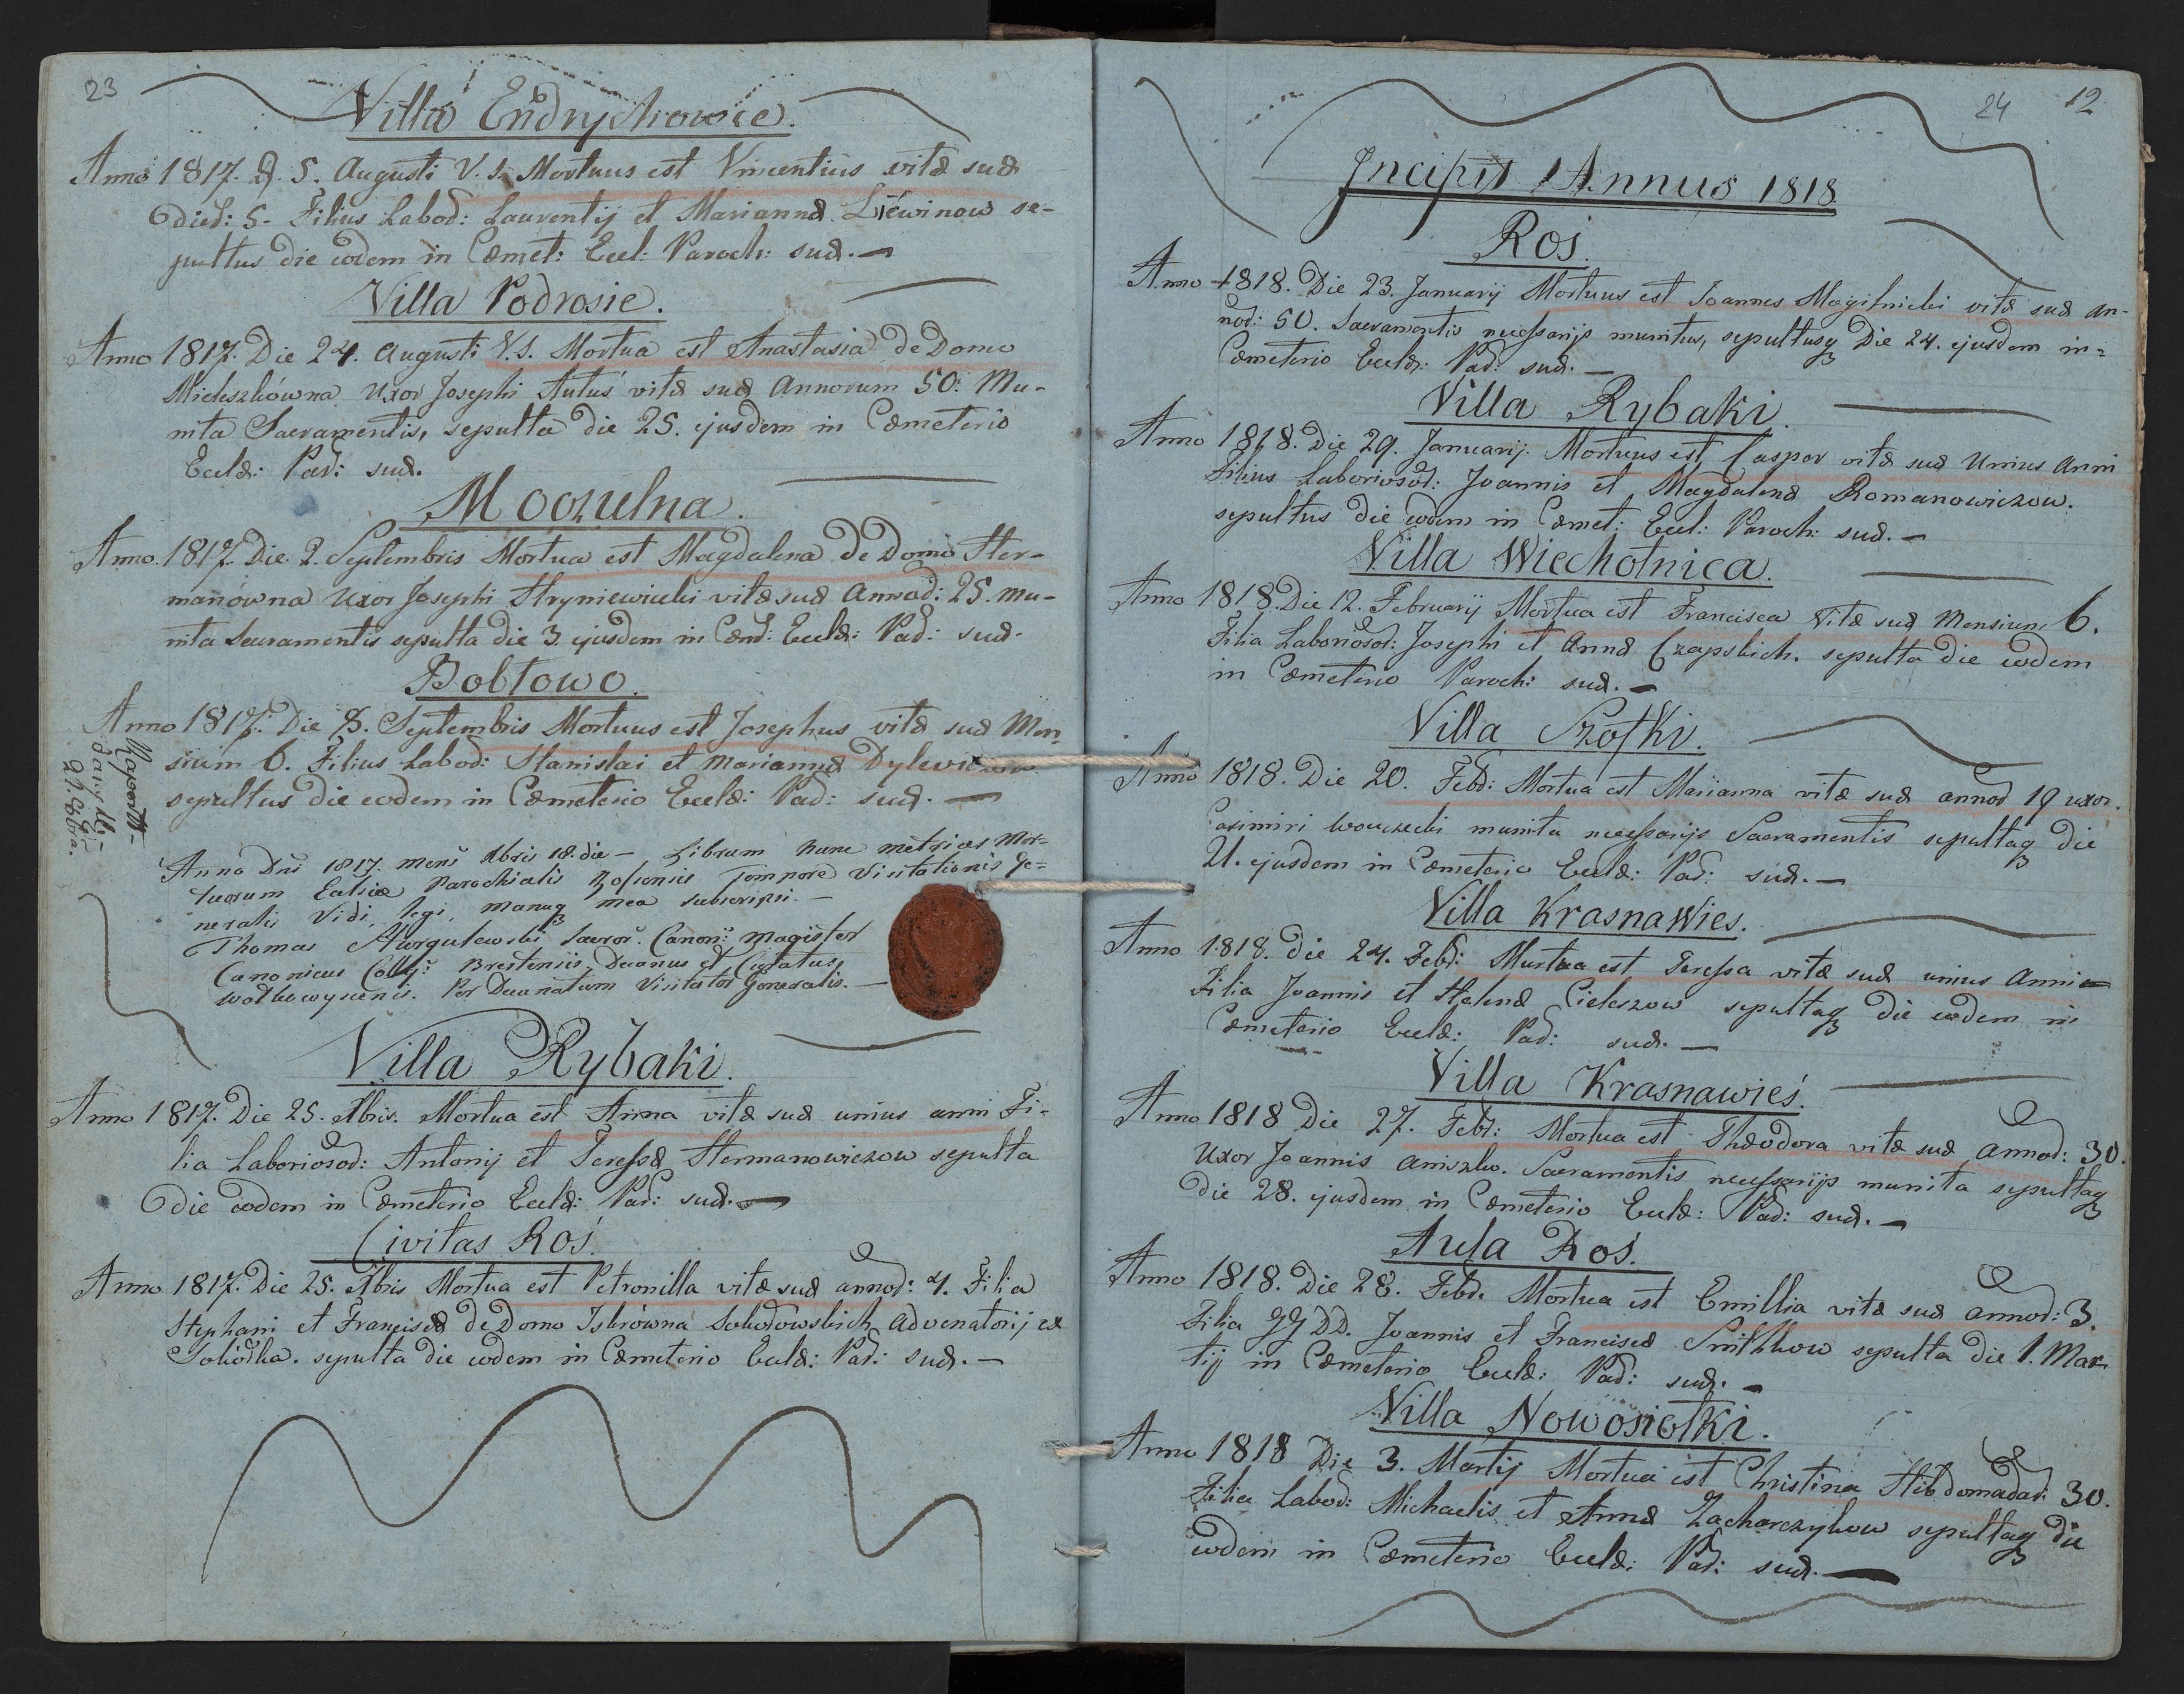 23
Villa Endrychowce.
Anno 1817. D. 5. Augusti V. S. Mortuus est Vincentius vitæ suæ
died: 5. Filius Labod: Laurentij et Mariannæ Liewinow se-
pultus die eodem in Cœmet: Eccl: Paroch: suæ.—
Villa Podrosie.
Anno 1817. Die 24. Augusti V. S. Mortua est Anastasia de Domo
Mieleszkówna Uxor Josephi vitæ suæ Annorum 50: Mu-
nita Sacramentis, sepulta die 25. ejusdem in Cœmeterio
Ecclæ: Par: suæ.
Moczulna.
Anno 1817. Die 2. Septembris Mortua est Magdalena de Domo Her-
manówna Uxor Josephi Hryniewicki vitæ suæ Annod: 25. mu-
nita Sacramentis sepulta die 3. ejusdem in Cœm: Ecclæ: Par: suæ.
Bobłowo.
Anno 1817. Die 8. Septembris Mortuus est Josephus vitæ suæ Men-
sium 6. Filius Labod: Stanislai et Mariannæ Dylewiczow
sepultus die eodem in Cœmeterio Ecclæ: Par: suæ.—
Raport
Anno Dni 1817. mens Xbris 18. die — Librum hunc metrices Mor-
tuorum Eccliæ Parochialis Rosensis Tempore Visitationis Ge-
neralis Vidi, legi, manuq mea subscripsi.—
Thomas Sacror. Canon: Magister
Canonicus Coll: Brestensis, Decanus
Wołkowyscenis. Per Decanatum Visitator Generalis.—
Villa Rybaki.
Anno 1817. Die 25. Xbris. Mortua est Anna vitæ suæ unius anni Fi-
lia Laboriosod: Antonij et Teressæ Hermanowiczow sepulta
die eodem in Cœmeterio Ecclæ: Par: suæ.—
Civitas Roś.
Anno 1817. Die 25. Xbris Mortua est Petronilla vitæ suæ annod: 4. Filia
Stephani et Franciscæ de Domo Iskrówna Sokołowskich, advenatorij ex
Sokółka. sepulta die eodem in Cœmeterio Ecclæ: Par: suæ.—
24 12
Incipit Annus 1818
Roś.
Anno 1818. Die 23. Januarij Mortuus est Joannes Mogilnicki vitæ suæ an-
nod: 50. Sacramentis necessarijs munitus, sepultusq Die 24. ejusdem in-
Cœmeterio Ecclæ: Par: suæ.—
Villa Rybaki.
Anno 1818. Die 29. Januarij. Mortuus est Caspar vitæ suæ Unius Anni
Filius Laboriosod: Joannis et Magdalenæ Romanowiczow.
sepultus die eodem in Cœmet: Eccl: Paroch: suæ.—
Villa Wiechotnica.
Anno 1818. Die 12. Februarij Mortua est Francisca Vitæ suæ Mensium 6.
Filia Laboriosod: Josephi et Annæ Czapskich. sepulta die eodem
in Cœmeterio Paroch: suæ.—
Villa Szołki.
Anno 1818. Die 20. Febr: Mortua est Marianna vitæ suæ annod 19 uxor.
Casimiri munita necessarijs Sacramentis sepultaq die
21. ejusdem in Cœmeterio Ecclæ: Par: suæ.—
Villa Krasnawies.
Anno 1818. die 24. Febr: Mortua est Teressa vitæ suæ unius Anni
Filia Joannis et Helenæ Cieleszow sepultaq die eodem in
Cœmeterio Ecclæ: Par: suæ.—
Villa Krasnawieś.
Anno 1818 Die 27. Febr: Mortua est Theodora vitæ suæ annod: 30.
Uxor Joannis Aniszko. Sacramentis necessarijs munita sepultaq
die 28. ejusdem in Cœmeterio Ecclæ: Par: suæ.—
Aula Roś.
Anno 1818. Die 28. Febr. Mortua est Emillia vitæ suæ annod: 3.
Filia GG DD. Joannis et Franciscæ Snitkow sepulta die 1. Mar-
tij in Cœmeterio Ecclæ: Par: suæ.—
Villa Nowosiołki.
Anno 1818 Die 3. Martij Mortua est Christina Hebdomadar: 30.
Filia Labod: Michaelis et Annæ Zacharczykow sepultaq die
eodem in Cœmeterio Ecclæ: Par: suæ.—